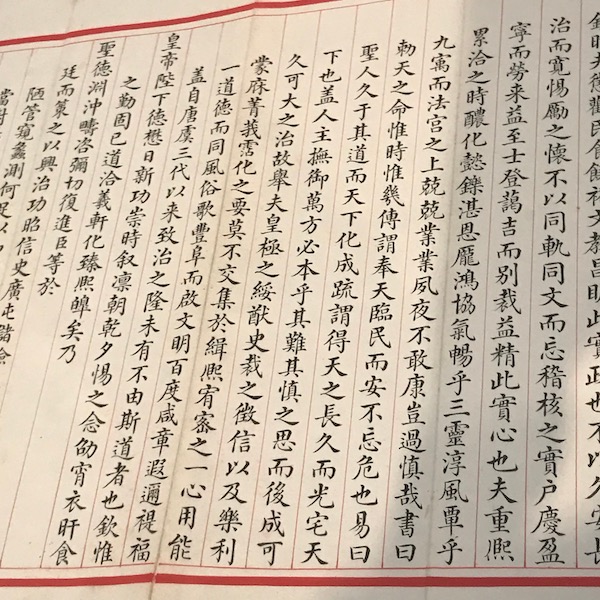 民餙餙裕文教昌明此實政也不以久安長
治而寬惕勵之懷不以同軌同文而忘稽核之實户慶盈
寧而勞來益至士登藹吉而別裁益精此實心也夫重熙
累洽之時醲化懿鑠湛恩龐鴻協氣暢乎三靈淳風覃乎
九寓而法宮之上兢兢業業夙夜不敢康豈過慎哉書曰
勅天之命惟時惟幾傳謂奉天臨民而安不忘危也易曰
聖人久于其道而天下化成疏謂得天之長久而光宅天
下也盖人主撫御萬方必本乎其難其慎之思而後成可
久可大之治故舉夫皇極之綏猷史裁之徵信以及樂利
蒙庥菁莪霑化之要莫不交集於緝熙宥密之一心用能
一道德而同風俗歌豐阜而啟文明百度咸章遐邇禔福
盖自唐虞三代以来致治之隆未有不由斯道者也欽惟
皇帝陛下德懋日新功崇時叙凛朝乾夕惕之念劭宵衣旰食
之勤固已道洽羲軒化臻熙皞矣乃
聖德淵沖疇咨彌切復進臣等於
廷而策之以興治功昭信史廣屯儲
陋管窺蠡測何足以